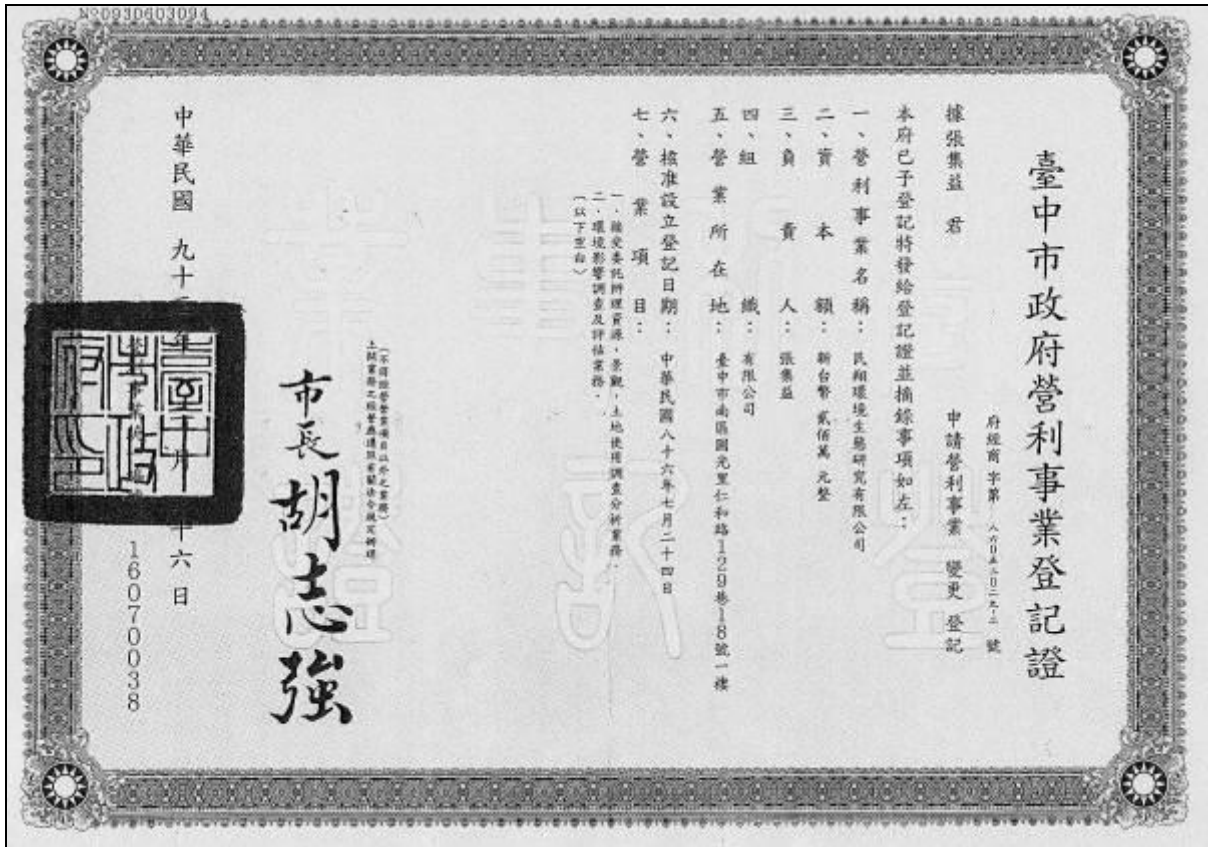 №0930603094
臺中市政府營利事業登記證
府經商 字第 號
據張集益 君 申請營利事業 變更 登記
本府已予登記特發給登記證並摘錄事項如左：
一、營利事業名稱：民翔環境生態研究有限公司
二、資本額：新台幣 貳佰萬 元整
三、負責人：張集益
四、組織：有限公司
五、營業所在地：臺中市南區國光里仁和路129巷18號一樓
六、核准設立登記日期：中華民國八十六年七月二十四日
七、營業項目：
一、接受委託辦理資源、景觀、土地使用調查分析業務。
二、環境影響調查及評估業務。
（以下空白）
（不得經營登記項目以外之業務）
市長 胡志強
中華民國 九十 年 月 十六 日
16070038